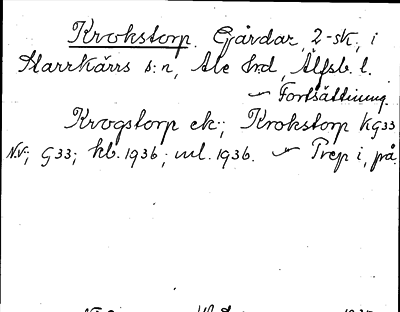 Krokstorp. Gårdar, 2-sk, i
Starrkärrs s:n, Ale hrd, Älfsb. l.
~ Fortsättning.
Krogstorp ek; Krokstorp KG33
N.V; G33; kb. 1936; ml. 1936. ~ Prep i, på.